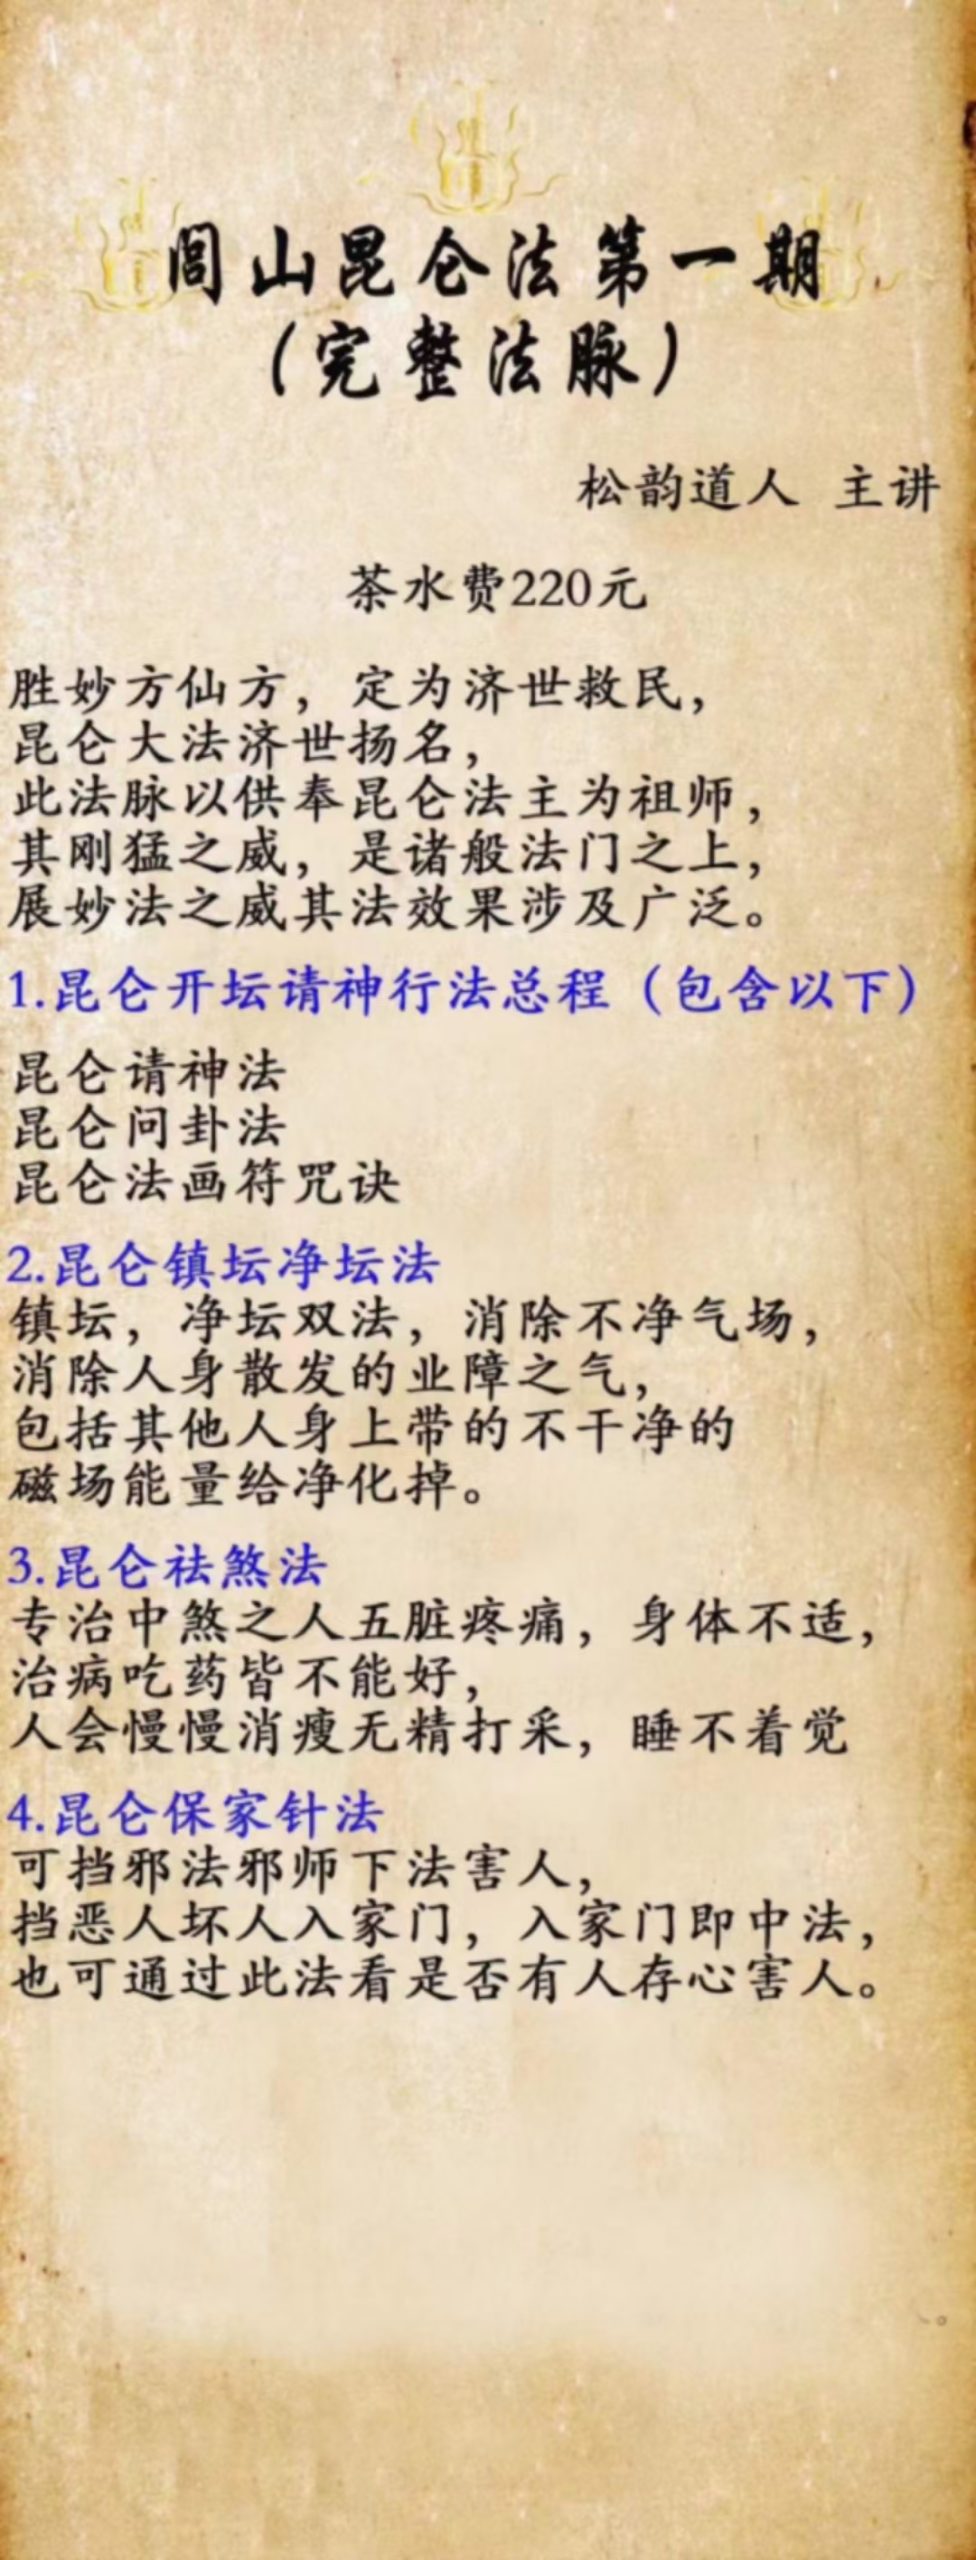 闾山昆仑法第一期
（完整法脉）
松韵道人 主讲
茶水费220元
胜妙方仙方，定为济世救民，
昆仑大法济世扬名，
此法脉以供奉昆仑法主为祖师，
其刚猛之威，是诸般法门之上，
展妙法之威其法效果涉及广泛。
1.昆仑开坛请神行法总程（包含以下）
昆仑请神法
昆仑问卦法
昆仑法画符咒诀
2.昆仑镇坛净坛法
镇坛，净坛双法，消除不净气场，
消除人身散发的业障之气，
包括其他人身上带的不干净的
磁场能量给净化掉。
3.昆仑祛煞法
专治中煞之人五脏疼痛，身体不适，
治病吃药皆不能好，
人会慢慢消瘦无精打采，睡不着觉
4.昆仑保家针法
可挡邪法邪师下法害人，
挡恶人坏人入家门，入家门即中法，
也可通过此法看是否有人存心害人。